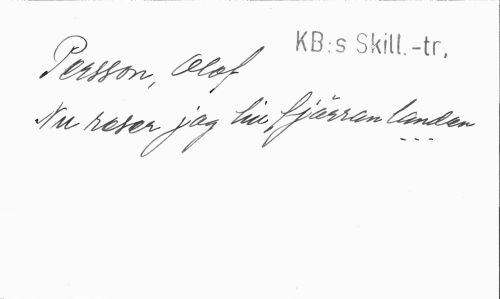 KB:s Skill.-tr,
Persson, Olof
Nu reser jag till fjärran landen
...